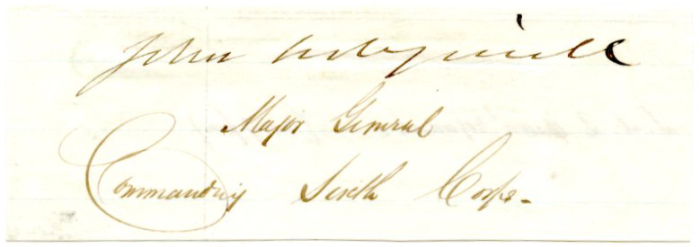 John Sedgwick
Major General
Commanding Sixth Corps.